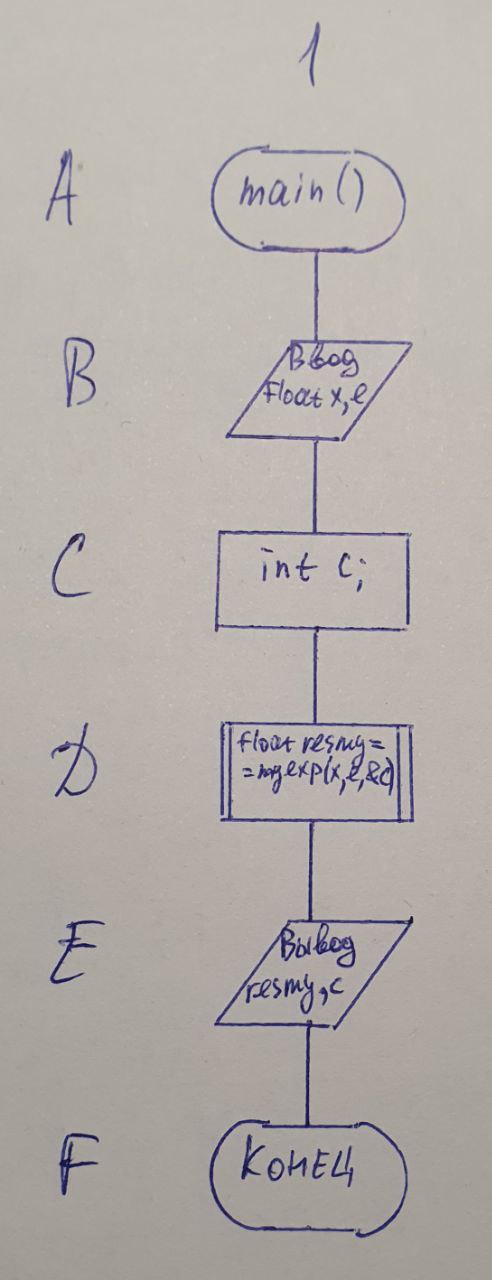 1
A
main()
B
Ввод
float x, e
C
int c;
D
float resmy=
=myexp(x, e, &c)
E
Вывод
resmy, c
F
КОНЕЦ